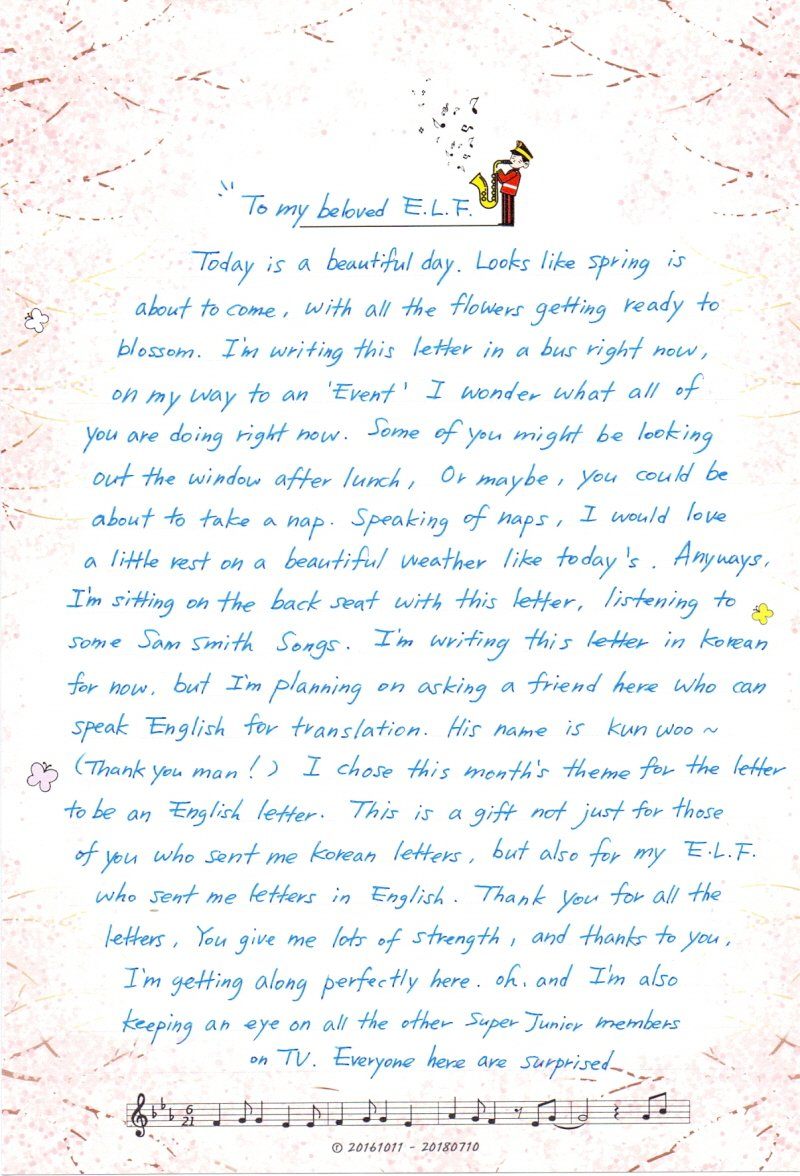 "To my beloved E.L.F.
Today is a beautiful day. Looks like spring is
about to come, with all the flowers getting ready to
blossom. I'm writing this letter in a bus right now,
on my way to an 'Event' I wonder what all of
you are doing right now. Some of you might be looking
out the window after lunch, Or maybe, you could be
about to take a nap. Speaking of naps, I would love
a little rest on a beautiful weather like today's. Anyways,
I'm sitting on the back seat with this letter, listening to
some Sam Smith Songs. I'm writing this letter in Korean
for now, but I'm planning on asking a friend here who can
speak English for translation. His name is Kun woo ~
(Thank you man!) I chose this month's theme for the letter
to be an English letter. This is a gift not just for those
of you who sent me Korean letters, but also for my E.L.F.
who sent me letters in English. Thank you for all the
letters, You give me lots of strength, and thanks to you,
I'm getting along perfectly here. oh, and I'm also
keeping an eye on all the other Super Junior members
on TV. Everyone here are surprised
6
21
© 20161011 - 20180710